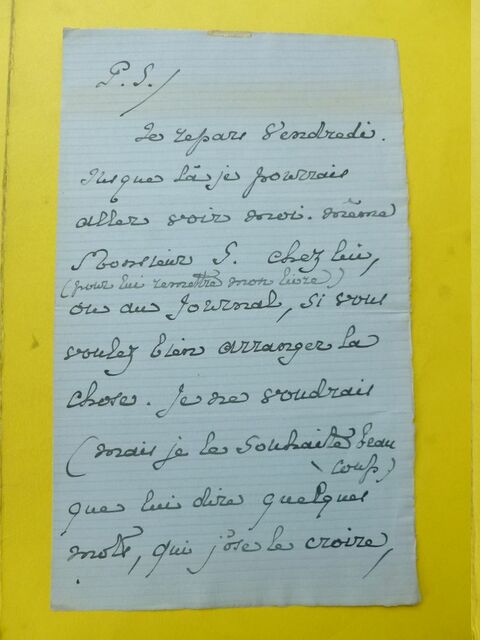 P. S./
Je repars Vendredi.
Jusque là je pourrais
aller voir moi-même
Monsieur S. chez lui,
(pour lui remettre mon livre)
ou au Journal, si vous
voulez bien arranger la
chose. Je ne voudrais
(mais je le souhaite beau
coup)
que lui dire quelques
mots, qui j'ose le croire,